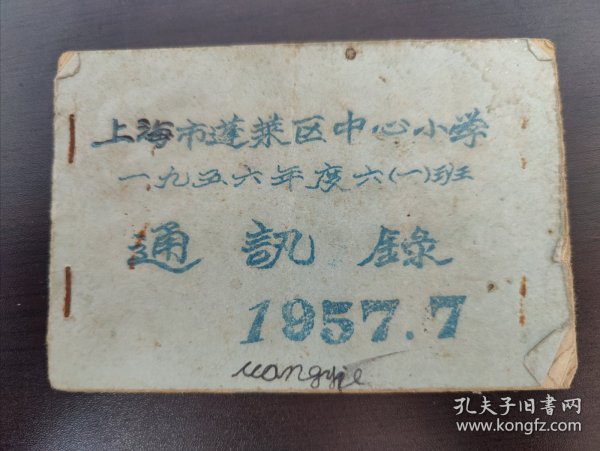 上海市蓬莱区中心小学
一九五六年度六(一)班
通訊錄
1957.7
wangyie
孔夫子旧书网
www.kongfz.com